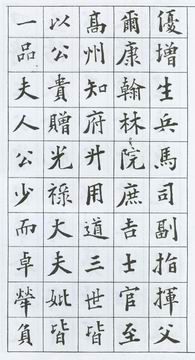 優增生兵馬司副指揮父
爾康翰林院庶吉士官至
高州知府升用道三世皆
以公貴贈光祿大夫妣皆
一品夫人公少而卓犖負